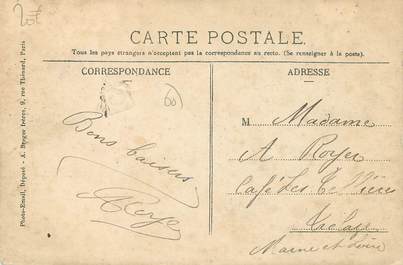 CARTE POSTALE
Tous les pays étrangers n'acceptent pas la correspondance au recto. (Se renseigner à la poste).
CORRESPONDANCE
ADRESSE
Bons baisers
A Royer
M Madame
A Royer
Café Les
Trélazé
Maine et Loire
Photo-Email, Déposé - A. Breger frères, 9, rue Thénard, Paris